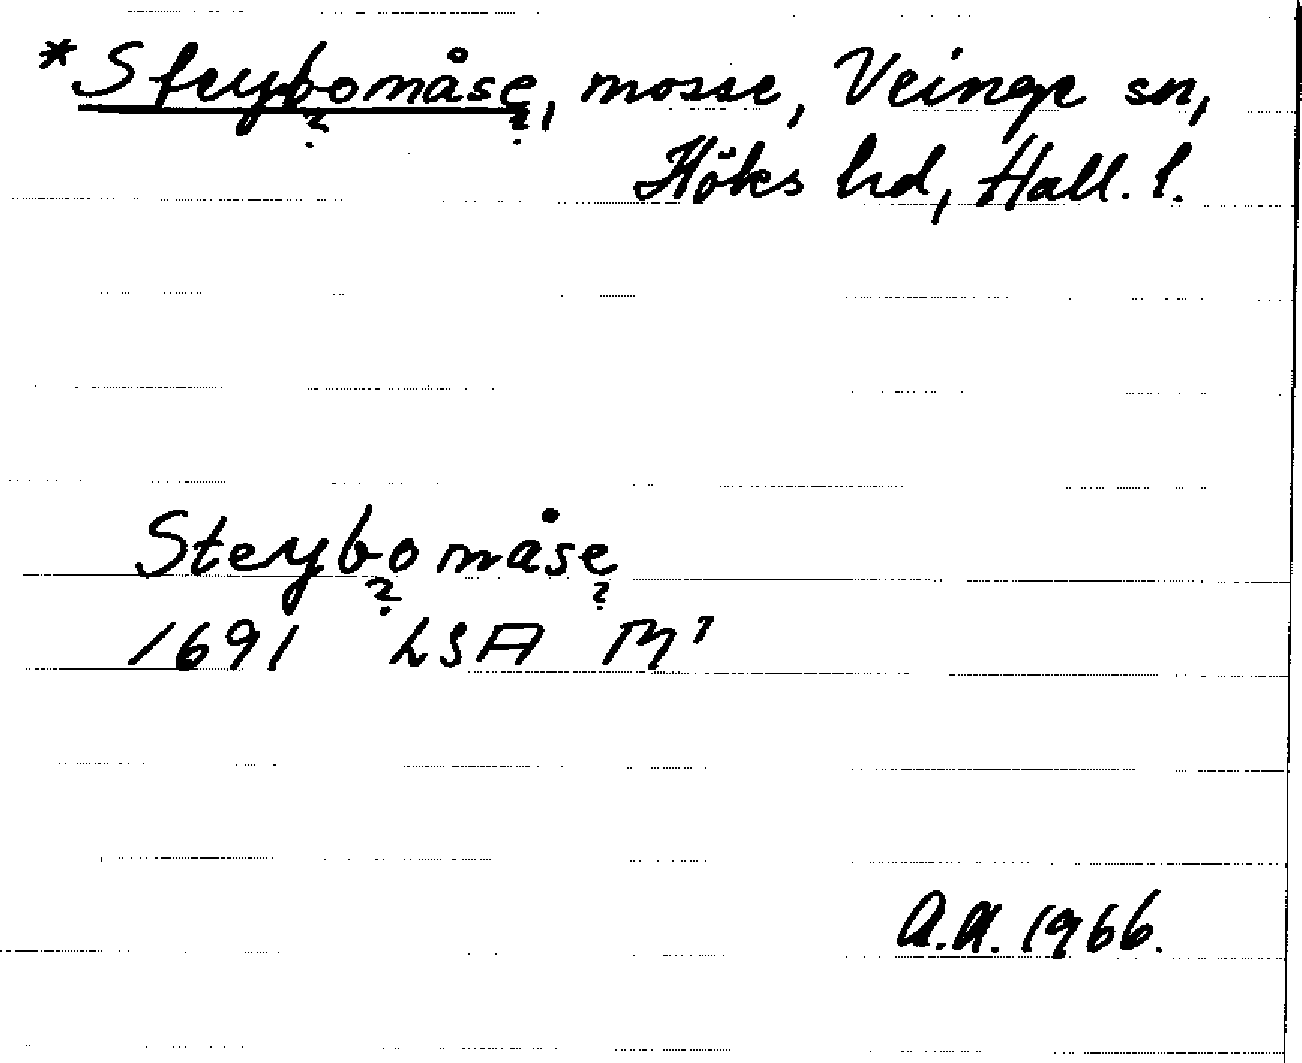 *Steybomåse, mosse, Veinge sn,
? ?
Höks hd, Hall. l.
Steybomåse
? ?
1691 LSA M1
A.A. 1966.